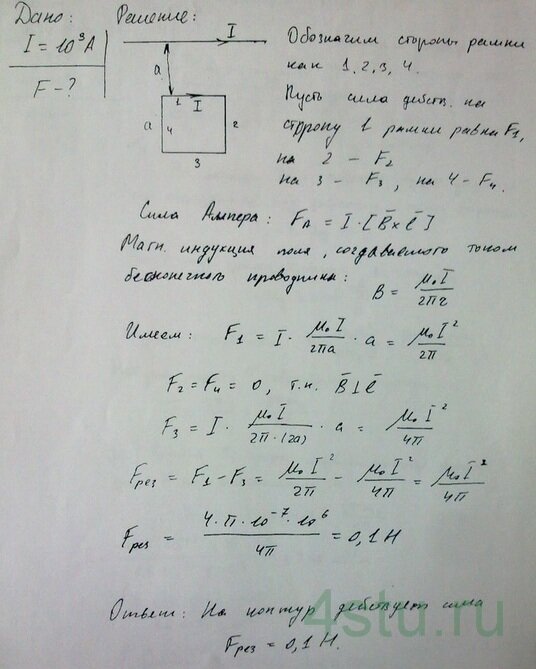 Дано:
I = 10³A
F - ?
Решение:
I
a
1 I
a 4 2
3
Обозначим стороны рамки
как 1, 2, 3, 4.
Пусть сила действ. на
сторону 1 рамки равна F₁,
на 2 – F₂
на 3 – F₃, на 4 – F₄.
Сила Ампера: F_A = I·[B̄×l̄]
Магн. индукция поля, создаваемого током
бесконечного проводника:
B = μ₀I / 2πr
Имеем: F₁ = I · μ₀I / 2πa · a = μ₀I² / 2π
F₂ = F₄ = 0, т.к. B̄⊥l̄
F₃ = I · μ₀I / 2π·(2a) · a = μ₀I² / 4π
Fрез = F₁ - F₃ = μ₀I² / 2π - μ₀I² / 4π = μ₀I² / 4π
Fрез = 4·π·10⁻⁷·10⁶ / 4π = 0,1 Н
Ответ: На контур действует сила
Fрез = 0,1 Н.
4stu.ru